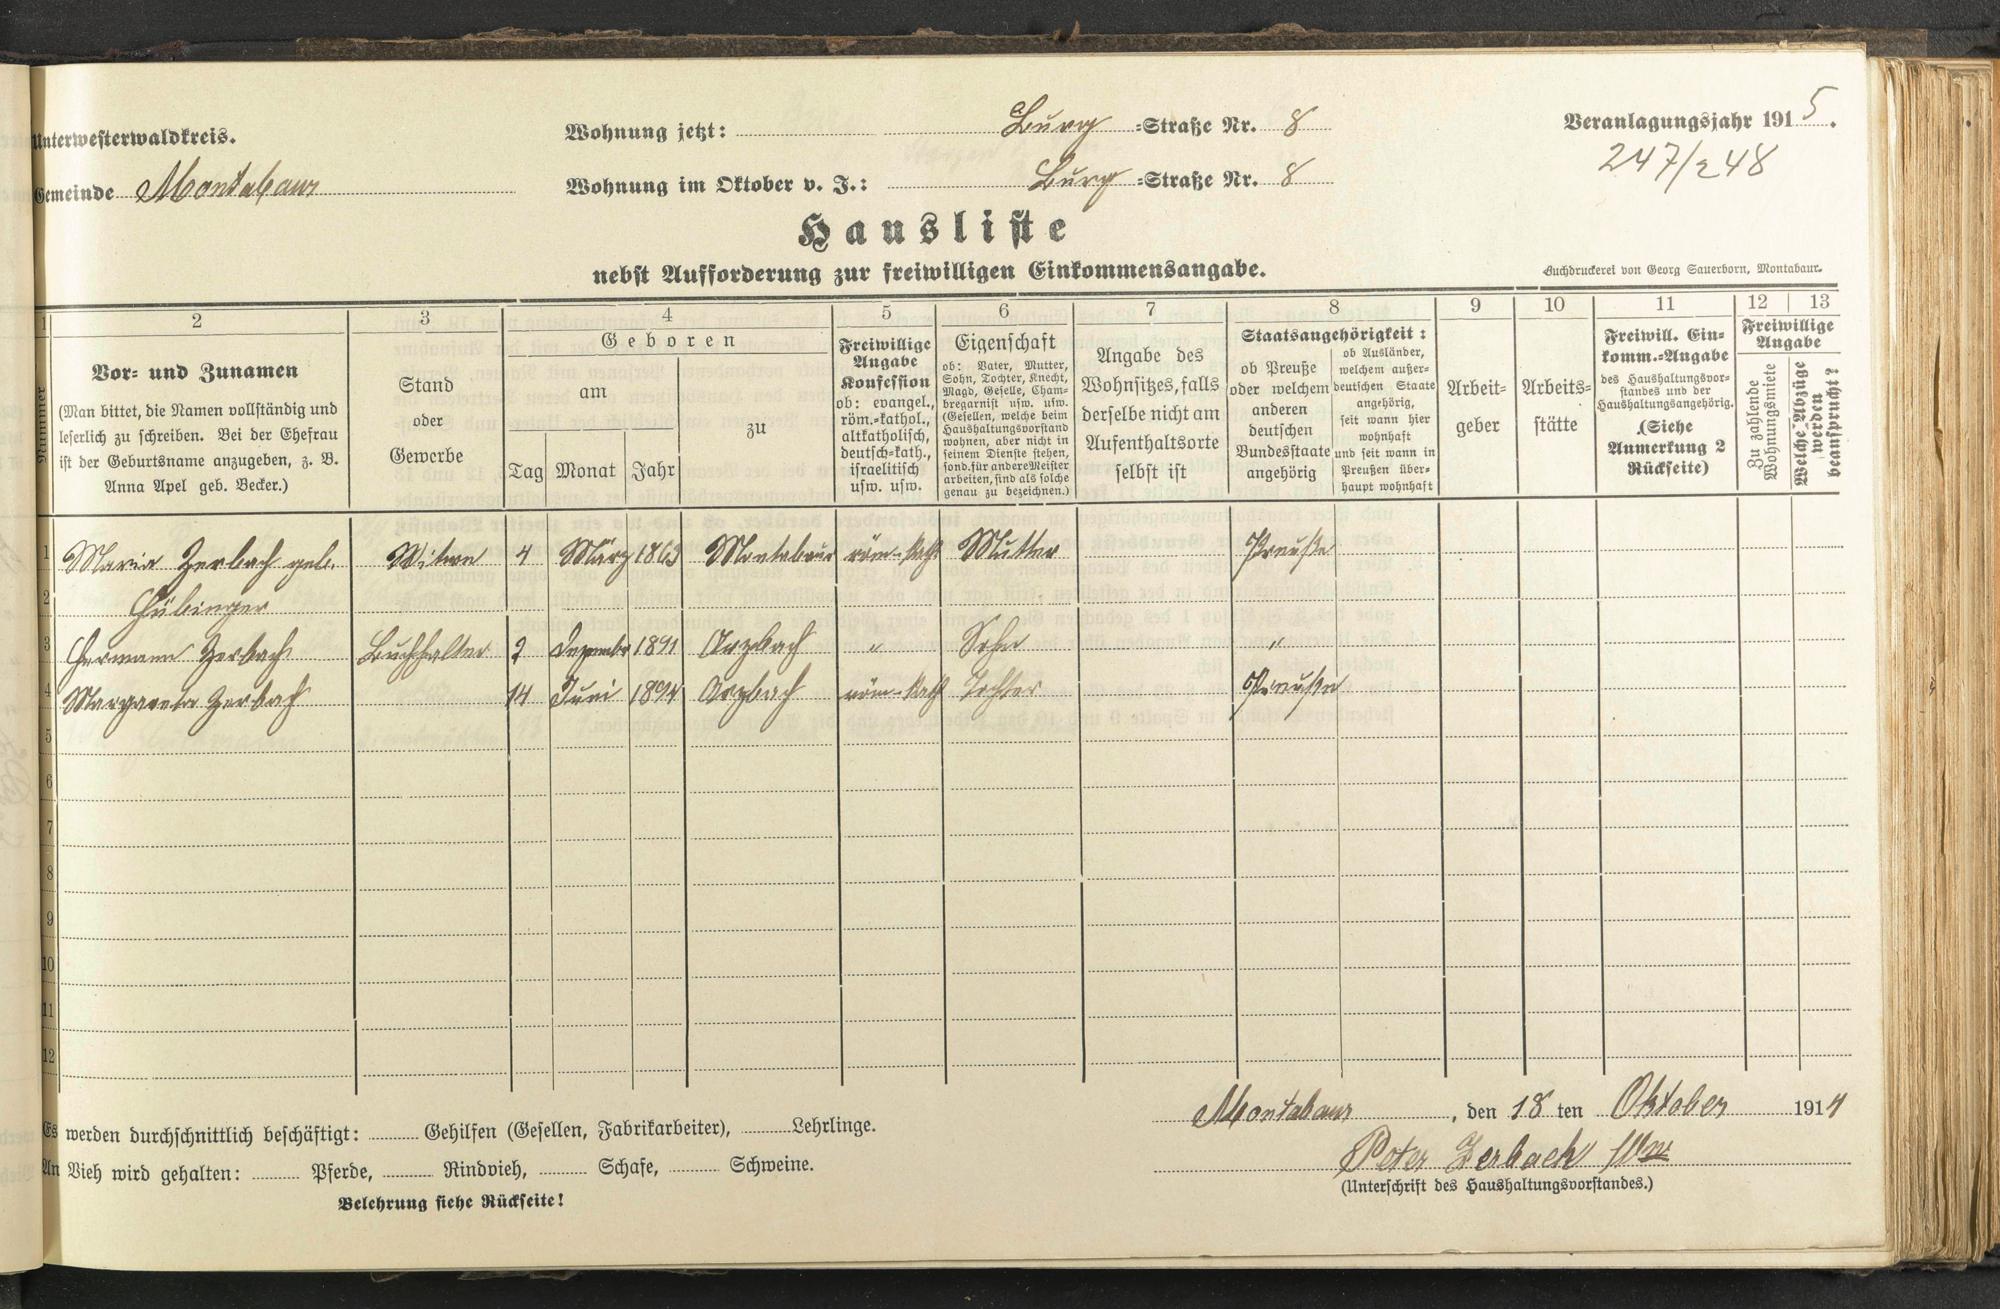 Unterwesterwaldkreis.
Wohnung jetzt: Burg -Straße Nr. 8
Veranlagungsjahr 1915.
Gemeinde Montabaur
Wohnung im Oktober v. J.: Burg -Straße Nr. 8
247/248
Hausliste
nebst Aufforderung zur freiwilligen Einkommensangabe.
Buchdruckerei von Georg Sauerborn, Montabaur.
1 2 3 4 5 6 7 8 9 10 11 12 13
Nummer
Vor- und Zunamen
(Man bittet, die Namen vollständig und
leserlich zu schreiben. Bei der Ehefrau
ist der Geburtsname anzugeben, z. B.
Anna Apel geb. Becker.)
Stand
oder
Gewerbe
Geboren
am
Tag Monat Jahr
zu
Freiwillige
Angabe
Konfession
ob: evangel.,
röm.-kathol.,
altkatholisch,
deutsch-kath.,
israelitisch
usw. usw.
Eigenschaft
ob: Vater, Mutter,
Sohn, Tochter, Knecht,
Magd, Geselle, Cham-
bregarnist usw. usw.
(Gesellen, welche beim
Haushaltungsvorstand
wohnen, aber nicht in
seinem Dienste stehen,
sond. für andere Meister
arbeiten, sind als solche
genau zu bezeichnen.)
Angabe des
Wohnsitzes, falls
derselbe nicht am
Aufenthaltsorte
selbst ist
Staatsangehörigkeit:
ob Preuße
oder welchem
anderen
deutschen
Bundesstaate
angehörig
ob Ausländer,
welchem außer-
deutschen Staate
angehörig,
seit wann hier
wohnhaft
und seit wann in
Preußen über-
haupt wohnhaft
Arbeit-
geber
Arbeits-
stätte
Freiwill. Ein-
komm.-Angabe
des Haushaltungsvor-
standes und der
Haushaltungsangehörig.
(Siehe
Anmerkung 2
Rückseite)
Freiwillige
Angabe
Zu zahlende
Wohnungsmiete
Welche Abzüge
werden
beansprucht?
1 Maria Zerbach geb. Witwe 4 März 1863 Montabaur röm.-kath Mutter Preuße
2 Hübinger
3 Hermann Zerbach Buchhalter 2 Dezember 1891 Arzbach " Sohn "
4 Margareta Zerbach 14 Juni 1894 Arzbach röm.-kath Tochter Preußin
5
6
7
8
9
10
11
12
Montabaur, den 18 ten Oktober 1914
Es werden durchschnittlich beschäftigt: Gehilfen (Gesellen, Fabrikarbeiter), Lehrlinge.
Peter Zerbach Ww
An Vieh wird gehalten: Pferde, Rindvieh, Schafe, Schweine.
(Unterschrift des Haushaltungsvorstandes.)
Belehrung siehe Rückseite!